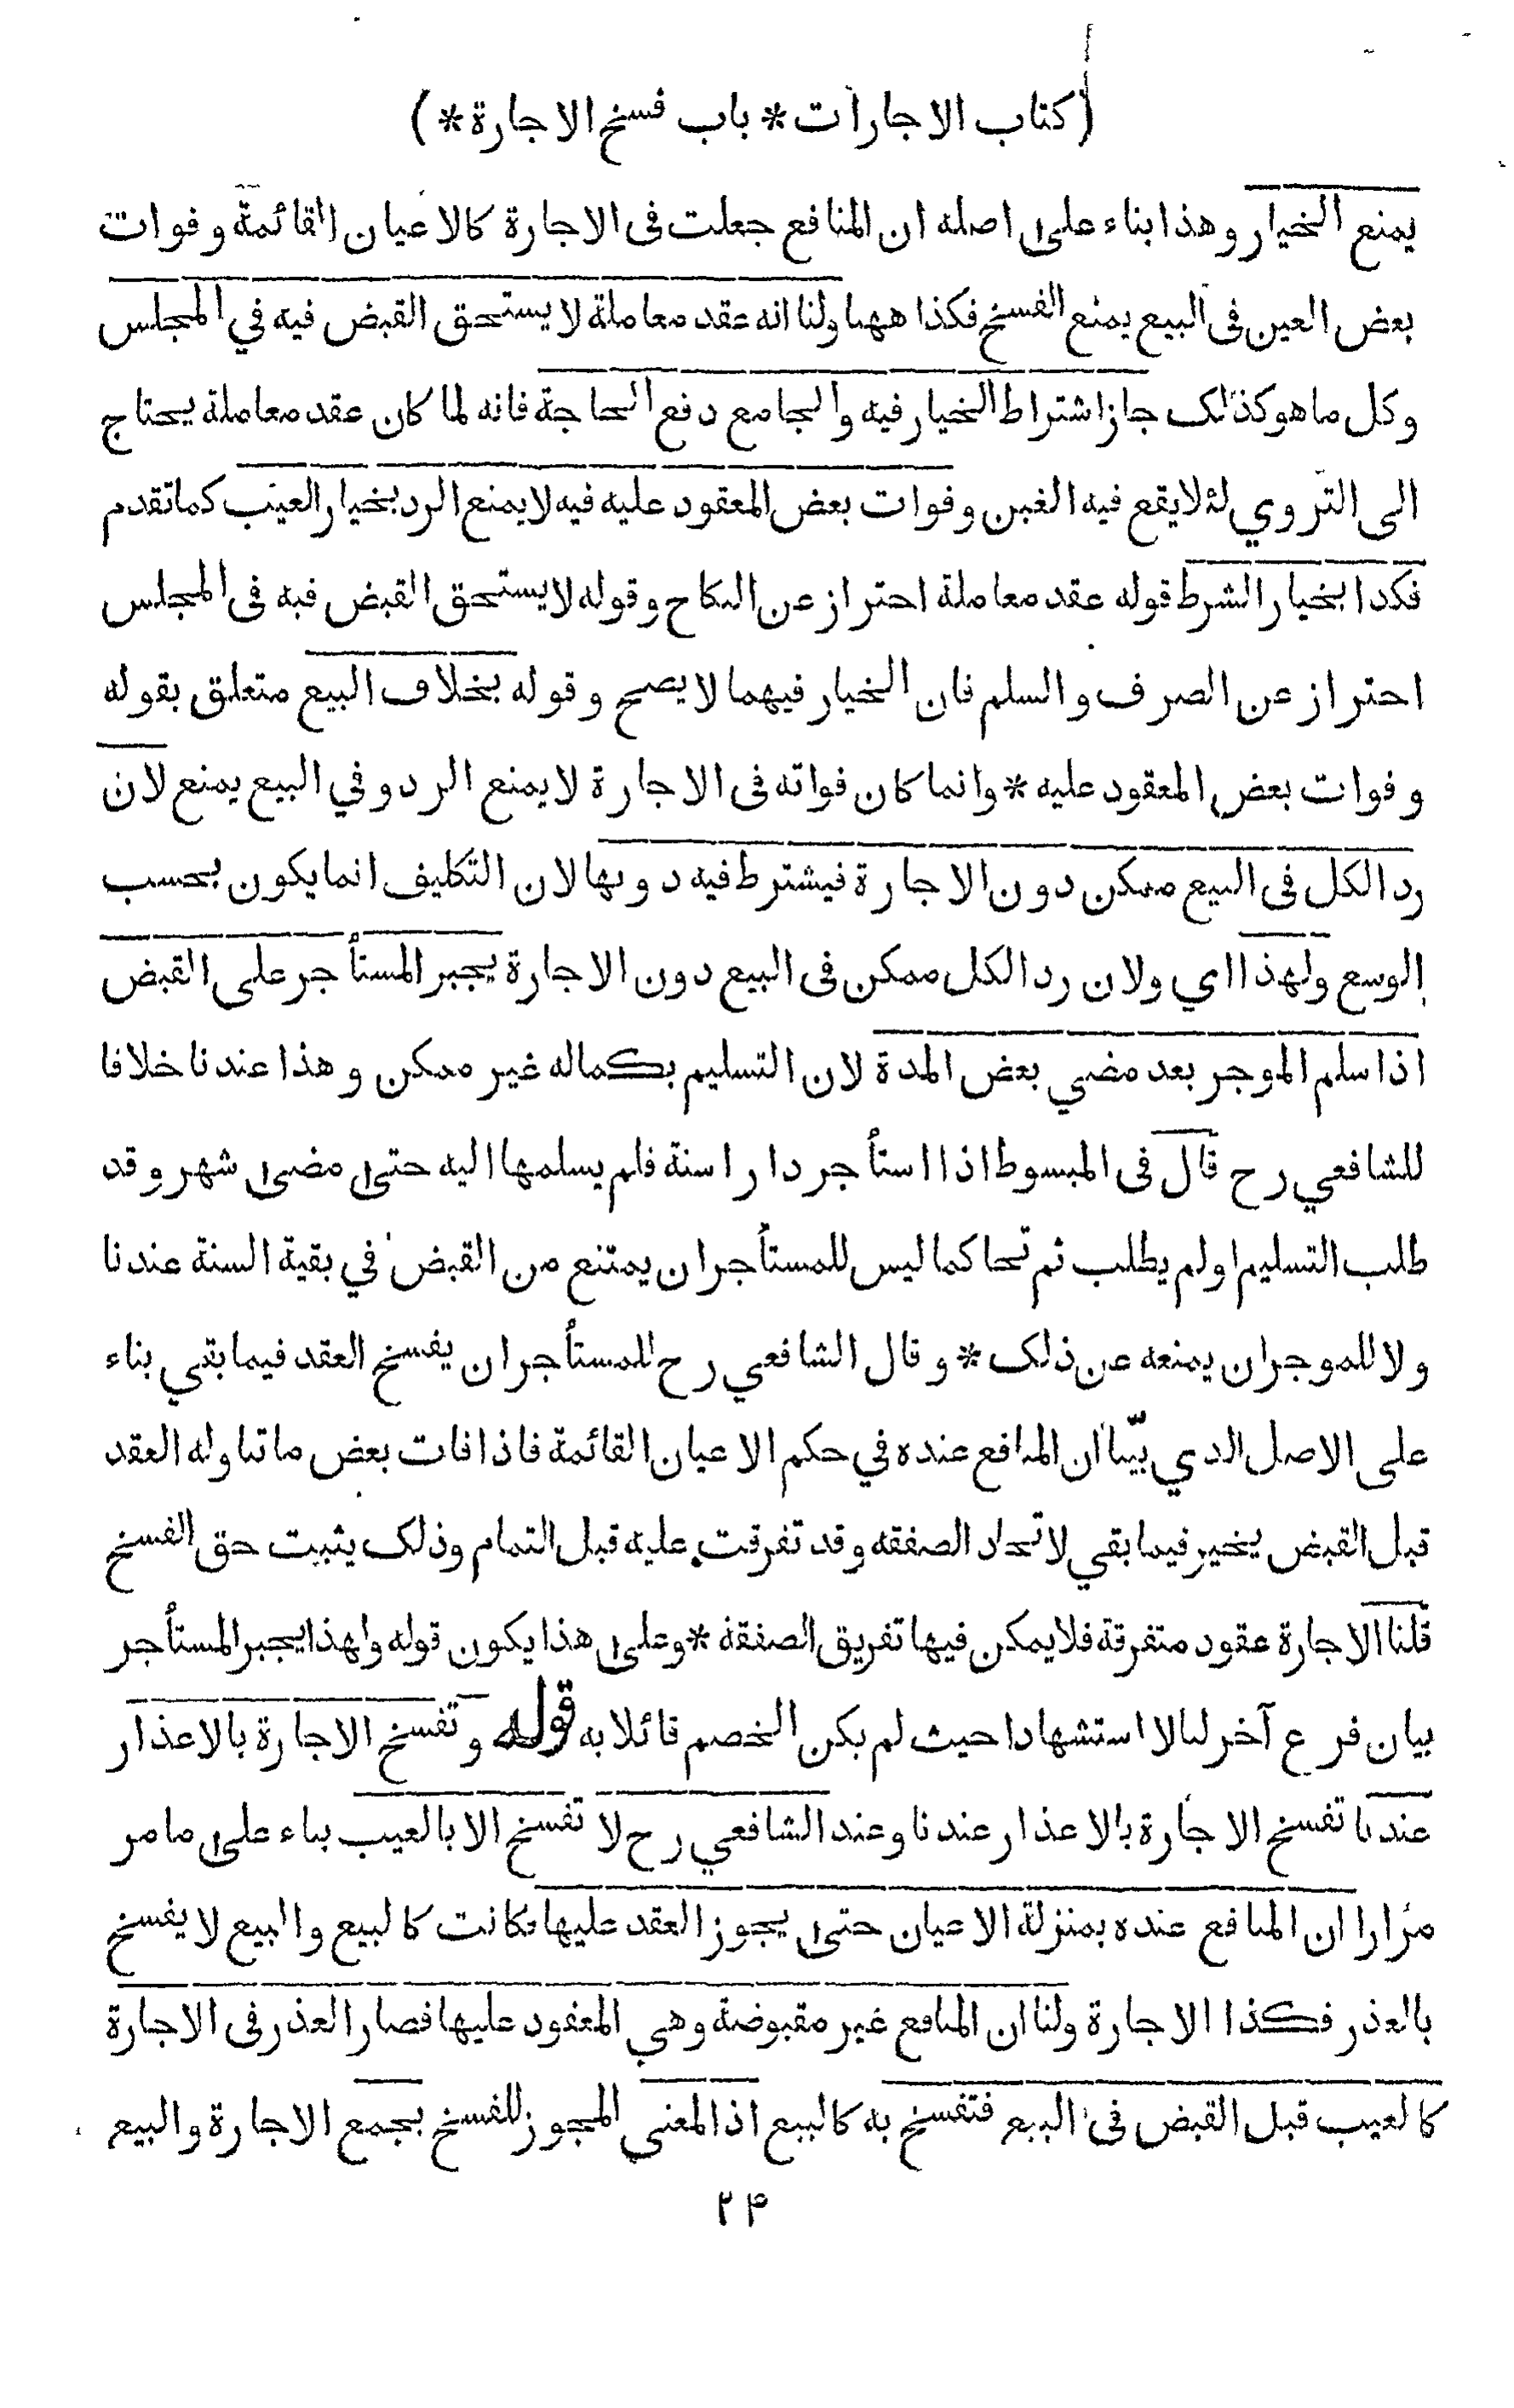 ( كتاب الاجارات * باب فسخ الاجارة * )
يمنع الخيار وهذا بناء على اصله ان المنافع جعلت فى الاجارة كالاعيان القائمة وفوات
بعض العين فى البيع يمنع الفسخ فكذا ههنا ولنا انه عقد معاملة لا يستحق القبض فيه في المجلس
وكل ما هو كذلك جاز اشتراط الخيار فيه والجامع دفع الحاجة فانه لما كان عقد معاملة يحتاج
الى التروي لئلا يقع فيه الغبن وفوات بعض المعقود عليه فيه لا يمنع الرد بخيار العيب كما تقدم
فكذا بخيار الشرط قوله عقد معاملة احتراز عن النكاح وقوله لا يستحق القبض فيه فى المجلس
احتراز عن الصرف والسلم فان الخيار فيهما لا يصح وقوله بخلاف البيع متعلق بقوله
وفوات بعض المعقود عليه * وانما كان فواته فى الاجارة لا يمنع الرد وفي البيع يمنع لان
رد الكل فى البيع ممكن دون الاجارة فيشترط فيه دونها لان التكليف انما يكون بحسب
الوسع ولهذا اي ولان رد الكل ممكن فى البيع دون الاجارة يجبر المستأجر على القبض
اذا سلم الموجر بعد مضي بعض المدة لان التسليم بكماله غير ممكن وهذا عندنا خلافا
للشافعي رح قال فى المبسوط اذا استأجر دارا سنة فلم يسلمها اليه حتى مضى شهر وقد
طلب التسليم او لم يطلب ثم تحاكما ليس للمستأجر ان يمتنع من القبض في بقية السنة عندنا
ولا للموجر ان يمنعه عن ذلك * وقال الشافعي رح للمستأجر ان يفسخ العقد فيما بقي بناء
على الاصل الذي بيّنا ان المنافع عنده في حكم الاعيان القائمة فاذا فات بعض ما تناوله العقد
قبل القبض يخير فيما بقي لاتحاد الصفقه وقد تفرقت عليه قبل التمام وذلك يثبت حق الفسخ
قلنا الاجارة عقود متفرقة فلا يمكن فيها تفريق الصفقة * وعلى هذا يكون قوله ولهذا يجبر المستأجر
بيان فرع آخر لنا لا استشهادا حيث لم يكن الخصم قائلا به قوله وتفسخ الاجارة بالاعذار
عندنا تفسخ الاجارة بالاعذار عندنا وعند الشافعي رح لا تفسخ الا بالعيب بناء على ما مر
مرارا ان المنافع عنده بمنزلة الاعيان حتى يجوز العقد عليها فكانت كالبيع والبيع لا يفسخ
بالعذر فكذا الاجارة ولنا ان المنافع غير مقبوضة وهي المعقود عليها فصار العذر فى الاجارة
كالعيب قبل القبض فى البيع فتفسخ به كالبيع اذ المعنى المجوز للفسخ يجمع الاجارة والبيع
٢۴